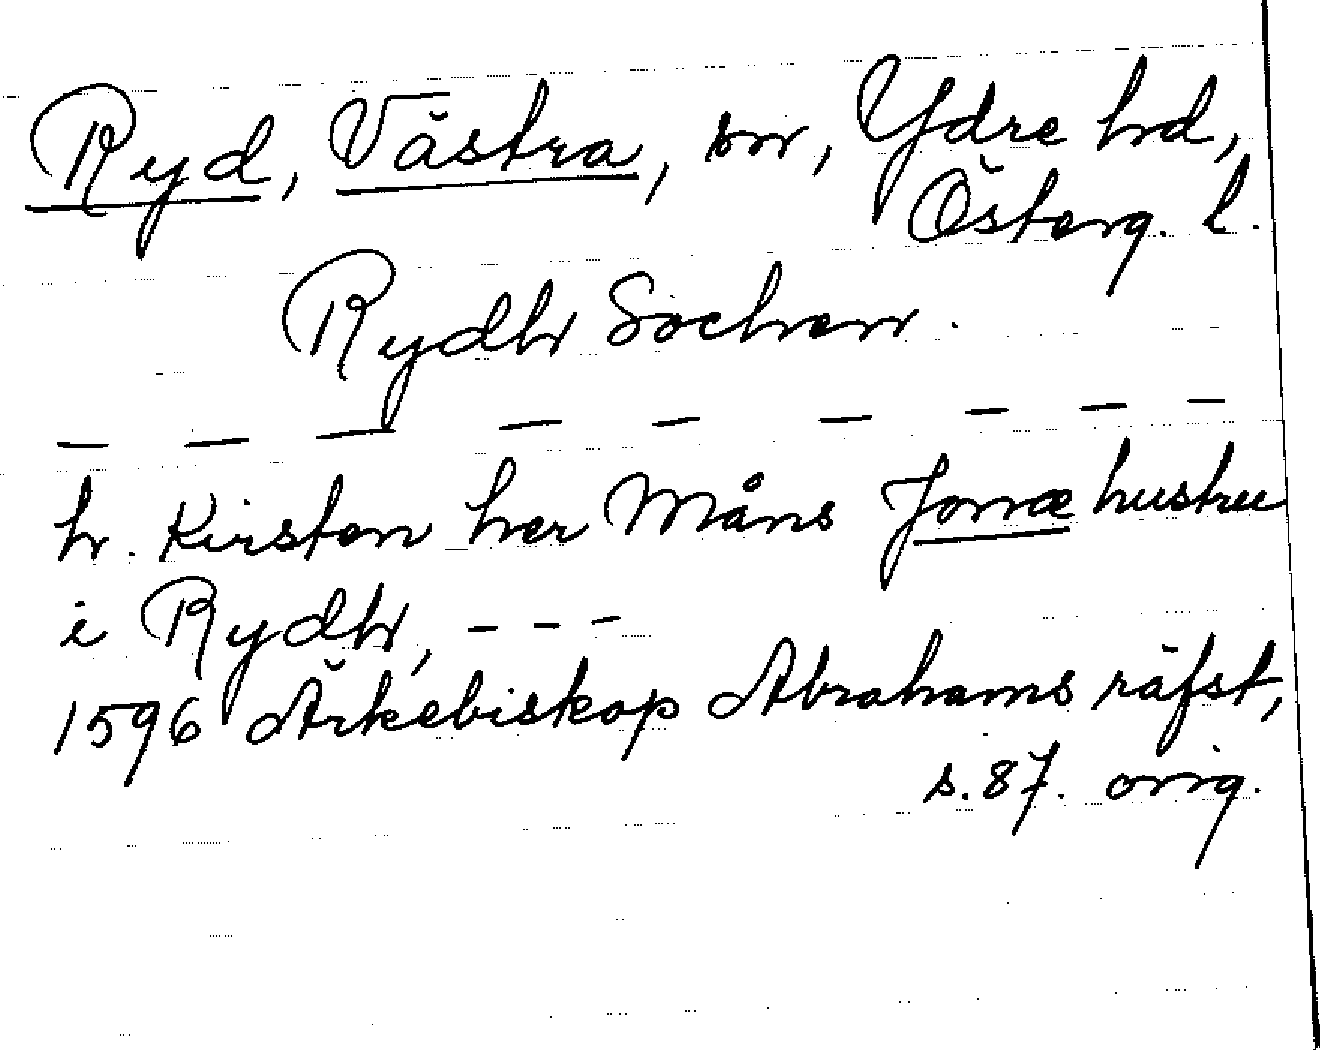 Ryd, Västra, sn, Ydre hd,
Österg. l.
Rydh Sochen.
— — — — — — — — —
h. Kirsten her Måns Jonæ hustru
i Rydh, - - -
1596 Ärkebiskop Abrahams räfst,
s. 87. orig.